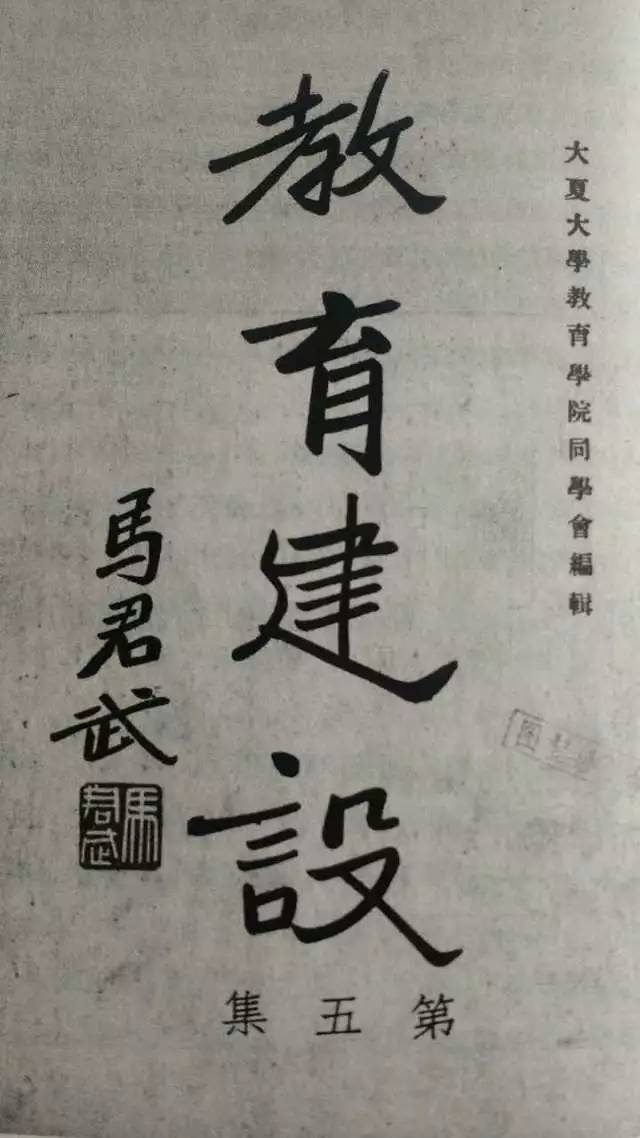 大夏大學教育學院同學會編輯
教育建設
馬君武
馬君武
第五集